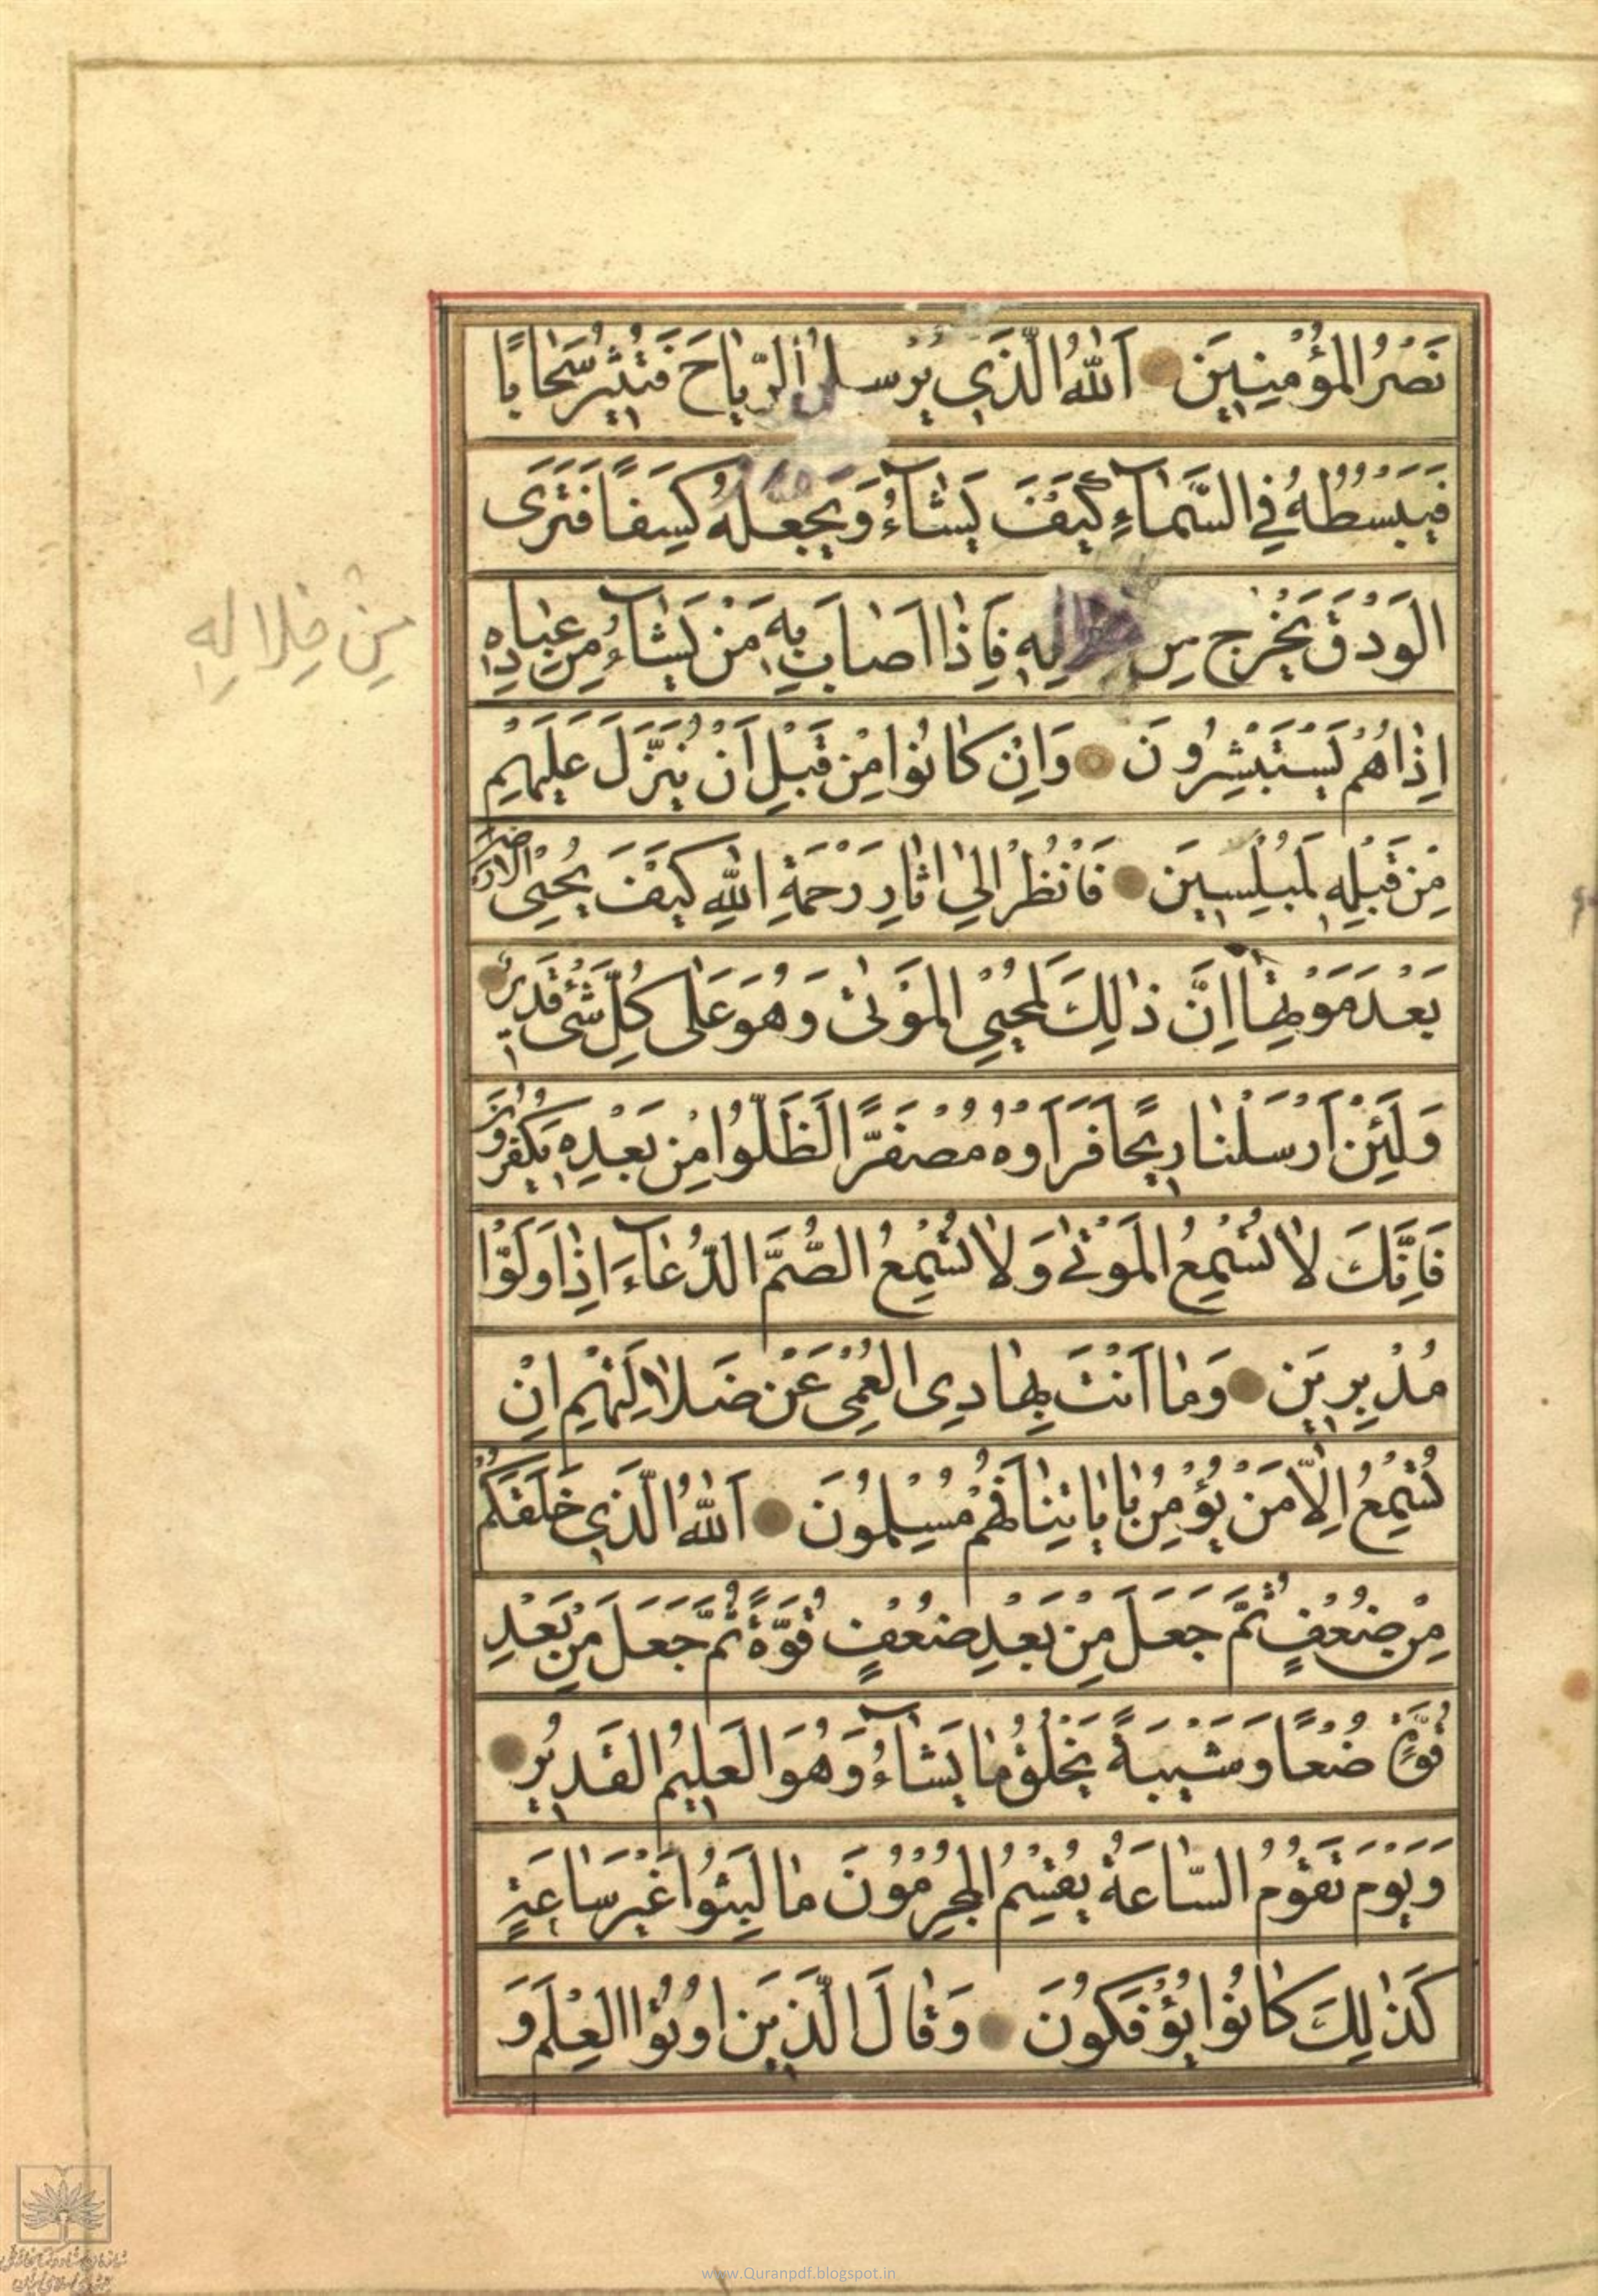 نَصْرُ الْمُؤْمِنِينَ اَللّٰهُ الَّذِي يُرْسِلُ الرِّيٰاحَ فَتُثِيرُ سَحٰابًا
فَيَبْسُطُهُ فِي السَّمٰآءِ كَيْفَ يَشٰآءُ وَيَجْعَلُهُ كِسَفًا فَتَرَى
الْوَدْقَ يَخْرُجُ مِن لِهِ فَاِذٰا اَصٰابَ بِهِ مَنْ يَشٰآءُ مِنْ عِبٰادِهِ
مِنْ خِلَالِهِ
اِذٰا هُمْ يَسْتَبْشِرُونَ وَاِنْ كٰانُوا مِنْ قَبْلِ اَنْ يُنَزَّلَ عَلَيْهِمْ
مِنْ قَبْلِهِ لَمُبْلِسِينَ فَانْظُرْ اِلٰي اٰثٰارِ رَحْمَةِ اللّٰهِ كَيْفَ يُحْيِي الْاَرْضَ
بَعْدَ مَوْتِهٰا اِنَّ ذٰلِكَ لَمُحْيِي الْمَوْتٰى وَهُوَ عَلٰى كُلِّ شَىْءٍ قَدِيرٌ
وَلَئِنْ اَرْسَلْنٰا رِيحًا فَرَاَوْهُ مُصْفَرًّا لَظَلُّوا مِنْ بَعْدِهِ يَكْفُرُونَ
فَاِنَّكَ لاٰ تُسْمِعُ الْمَوْتٰى وَلاٰ تُسْمِعُ الصُّمَّ الدُّعٰآءَ اِذٰا وَلَّوْا
مُدْبِرِينَ وَمٰا اَنْتَ بِهٰادِى الْعُمْىِ عَنْ ضَلاٰلَتِهِمْ اِنْ
تُسْمِعُ اِلاّٰ مَنْ يُؤْمِنُ بِاٰيٰاتِنٰا فَهُمْ مُسْلِمُونَ اَللّٰهُ الَّذِي خَلَقَكُمْ
مِنْ ضُعْفٍ ثُمَّ جَعَلَ مِنْ بَعْدِ ضُعْفٍ قُوَّةً ثُمَّ جَعَلَ مِنْ بَعْدِ
قُوَّةٍ ضُعْفًا وَشَيْبَةً يَخْلُقُ مٰا يَشٰآءُ وَهُوَ الْعَلِيمُ الْقَدِيرُ
وَيَوْمَ تَقُومُ السّٰاعَةُ يُقْسِمُ الْمُجْرِمُونَ مٰا لَبِثُوا غَيْرَ سٰاعَةٍ
كَذٰلِكَ كٰانُوا يُؤْفَكُونَ وَقٰالَ الَّذِينَ اُوتُوا الْعِلْمَ وَ
www.Quranpdf.blogspot.in